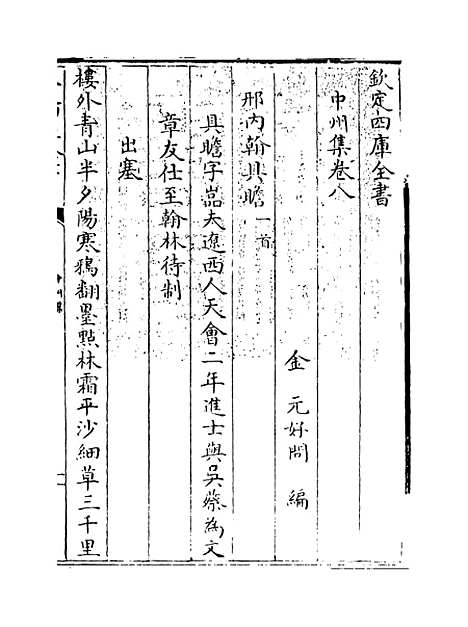 欽定四庫全書
中州集卷八
金 元好問 編
邢内翰具瞻一首
具瞻字嵓夫遼西人天會二年進士與吳蔡為文
章友仕至翰林待制
出塞
樓外青山半夕陽寒鴉翻墨㸃林霜平沙細草三千里